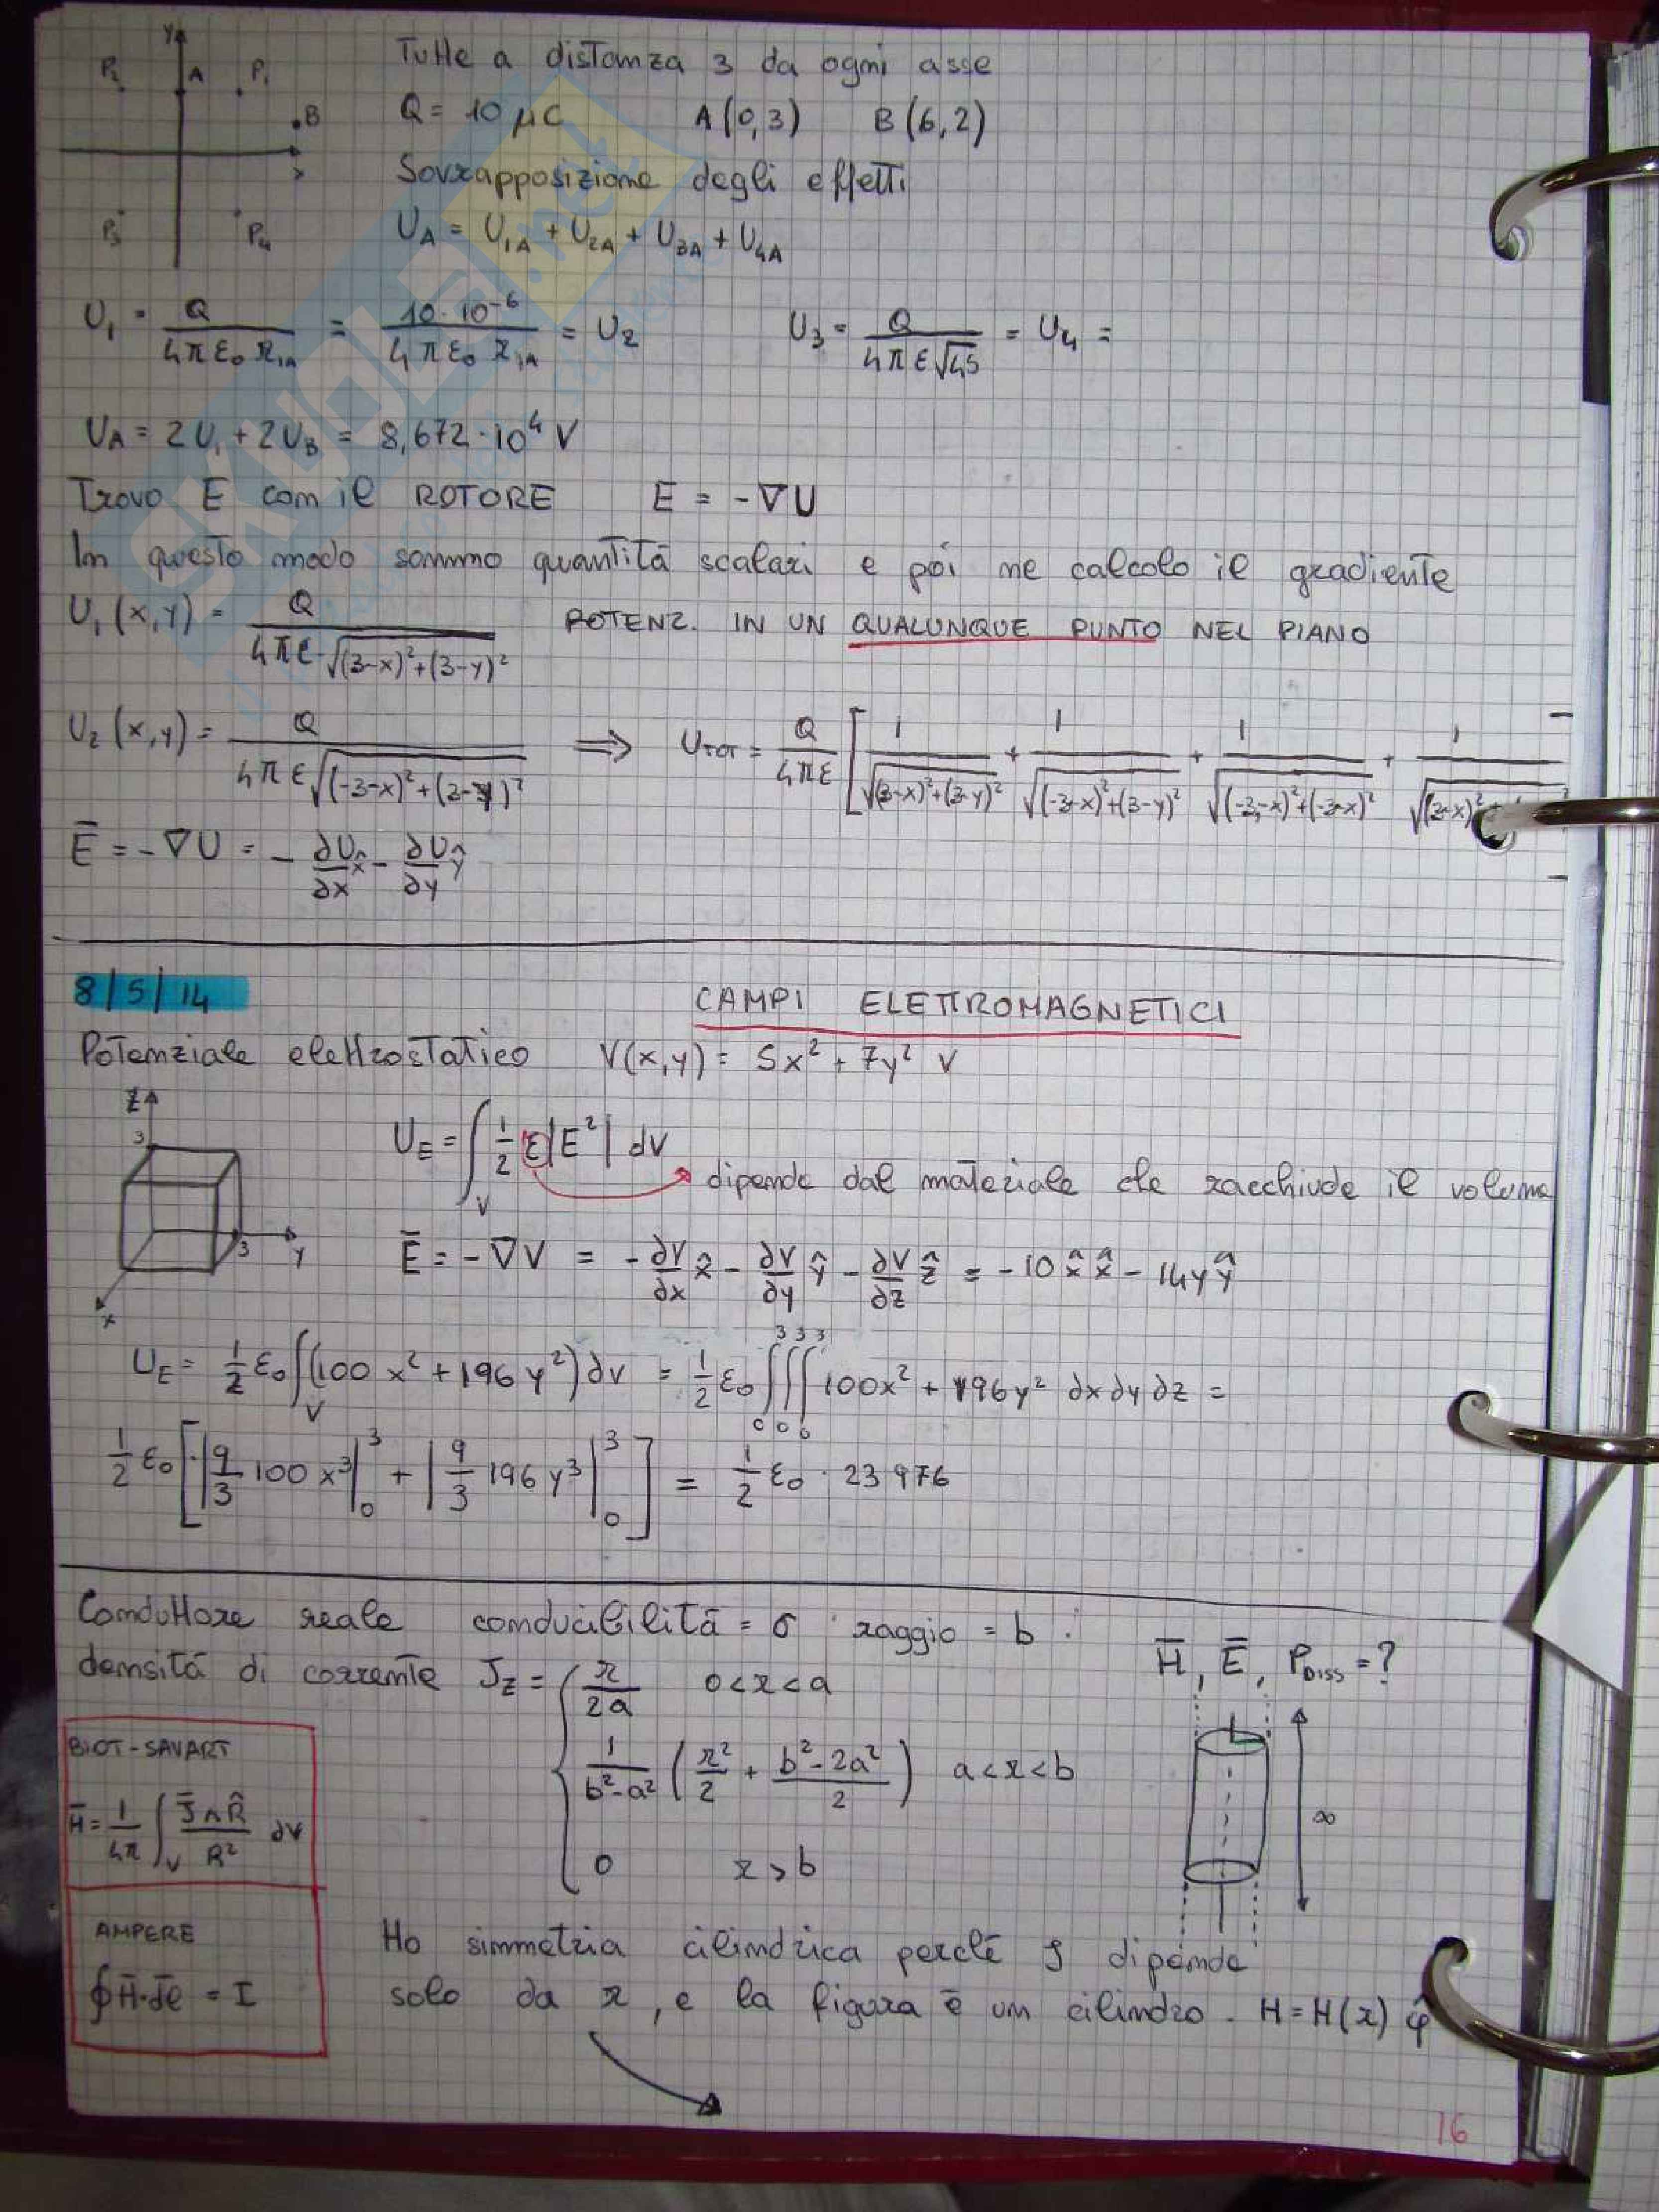 Y
P2 A P1
B
x
P3 P4
Tutte a distanza 3 da ogni asse
Q = 10 μC A(0,3) B(6,2)
Sovrapposizione degli effetti
U_A = U_1A + U_2A + U_3A + U_4A
U_1 = Q / 4πε₀ r_1A = 10·10⁻⁶ / 4πε₀ r_1A = U_2 U_3 = Q / 4πε√45 = U_4 =
U_A = 2U_1 + 2U_B = 8,672·10⁴ V
Trovo E con il ROTORE E = -∇U
In questo modo sommo quantità scalari e poi me calcolo il gradiente
U_1(x,y) = Q / 4πε·√(3-x)²+(3-y)² POTENZ. IN UN QUALUNQUE PUNTO NEL PIANO
U_2(x,y) = Q / 4πε√(-3-x)²+(3-y)² ⇒ U_TOT = Q/4πε [ 1/√(3-x)²+(3-y)² + 1/√(-3-x)²+(3-y)² + 1/√(-3-x)²+(-3-x)² + 1/√(3-x)²+
Ē = -∇U = - ∂U/∂x x̂ - ∂U/∂y ŷ
8/5/14 CAMPI ELETTROMAGNETICI
Potenziale elettrostatico V(x,y) = 5x² + 7y² V
Z
3
3 y
x
U_E = ∫_V 1/2 ε|E²| dV
dipende dal materiale che racchiude il volume
Ē = -∇V = -∂V/∂x x̂ - ∂V/∂y ŷ - ∂V/∂z ẑ = -10 x̂ x̂ - 14y ŷ
U_E = 1/2 ε₀ ∫_V (100x² + 196y²) dv = 1/2 ε₀ ∫₀³∫₀³∫₀³ 100x² + 196y² ∂x ∂y ∂z =
1/2 ε₀ [ |9/3 100 x³|₀³ + |9/3 196 y³|₀³ ] = 1/2 ε₀ · 23 976
Conduttore reale conducibilità = σ raggio = b :
densità di corrente J_Z = { r/2a 0<r<a
1/(b²-a²) (r²/2 + (b²-2a²)/2) a<r<b
0 r>b
H̄, Ē, P_DISS = ?
∞
BIOT-SAVART
H̄ = 1/4π ∫_V J̄∧R̂ / R² dV
AMPERE
∮H̄·dl̄ = I
Ho simmetria cilindrica perché J dipende
solo da r, e la figura è un cilindro. H = H(r) φ̂
16
SKUOLA.net